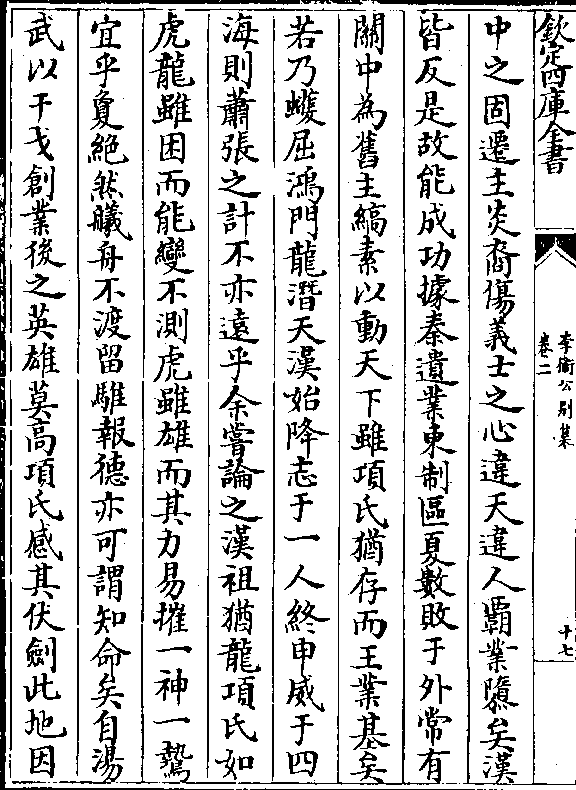 欽定四庫全書
李衛公別集
卷二
十七
中之固遷主炎裔傷義士之心違天違人霸業隳矣漢
皆反是故能成功據秦遺業東制區夏數敗于外常有
關中為舊主縞素以動天下雖項氏猶存而王業基矣
若乃蠖屈鴻門龍潛天漢始降志于一人終申威于四
海則蕭張之計不亦遠乎余嘗論之漢祖猶龍項氏如
虎龍雖困而能變不測虎雖雄而其力易摧一神一鷙
宜乎敻絕然艤舟不渡留騅報德亦可謂知命矣自湯
武以干戈創業後之英雄莫高項氏感其伏劍此地因